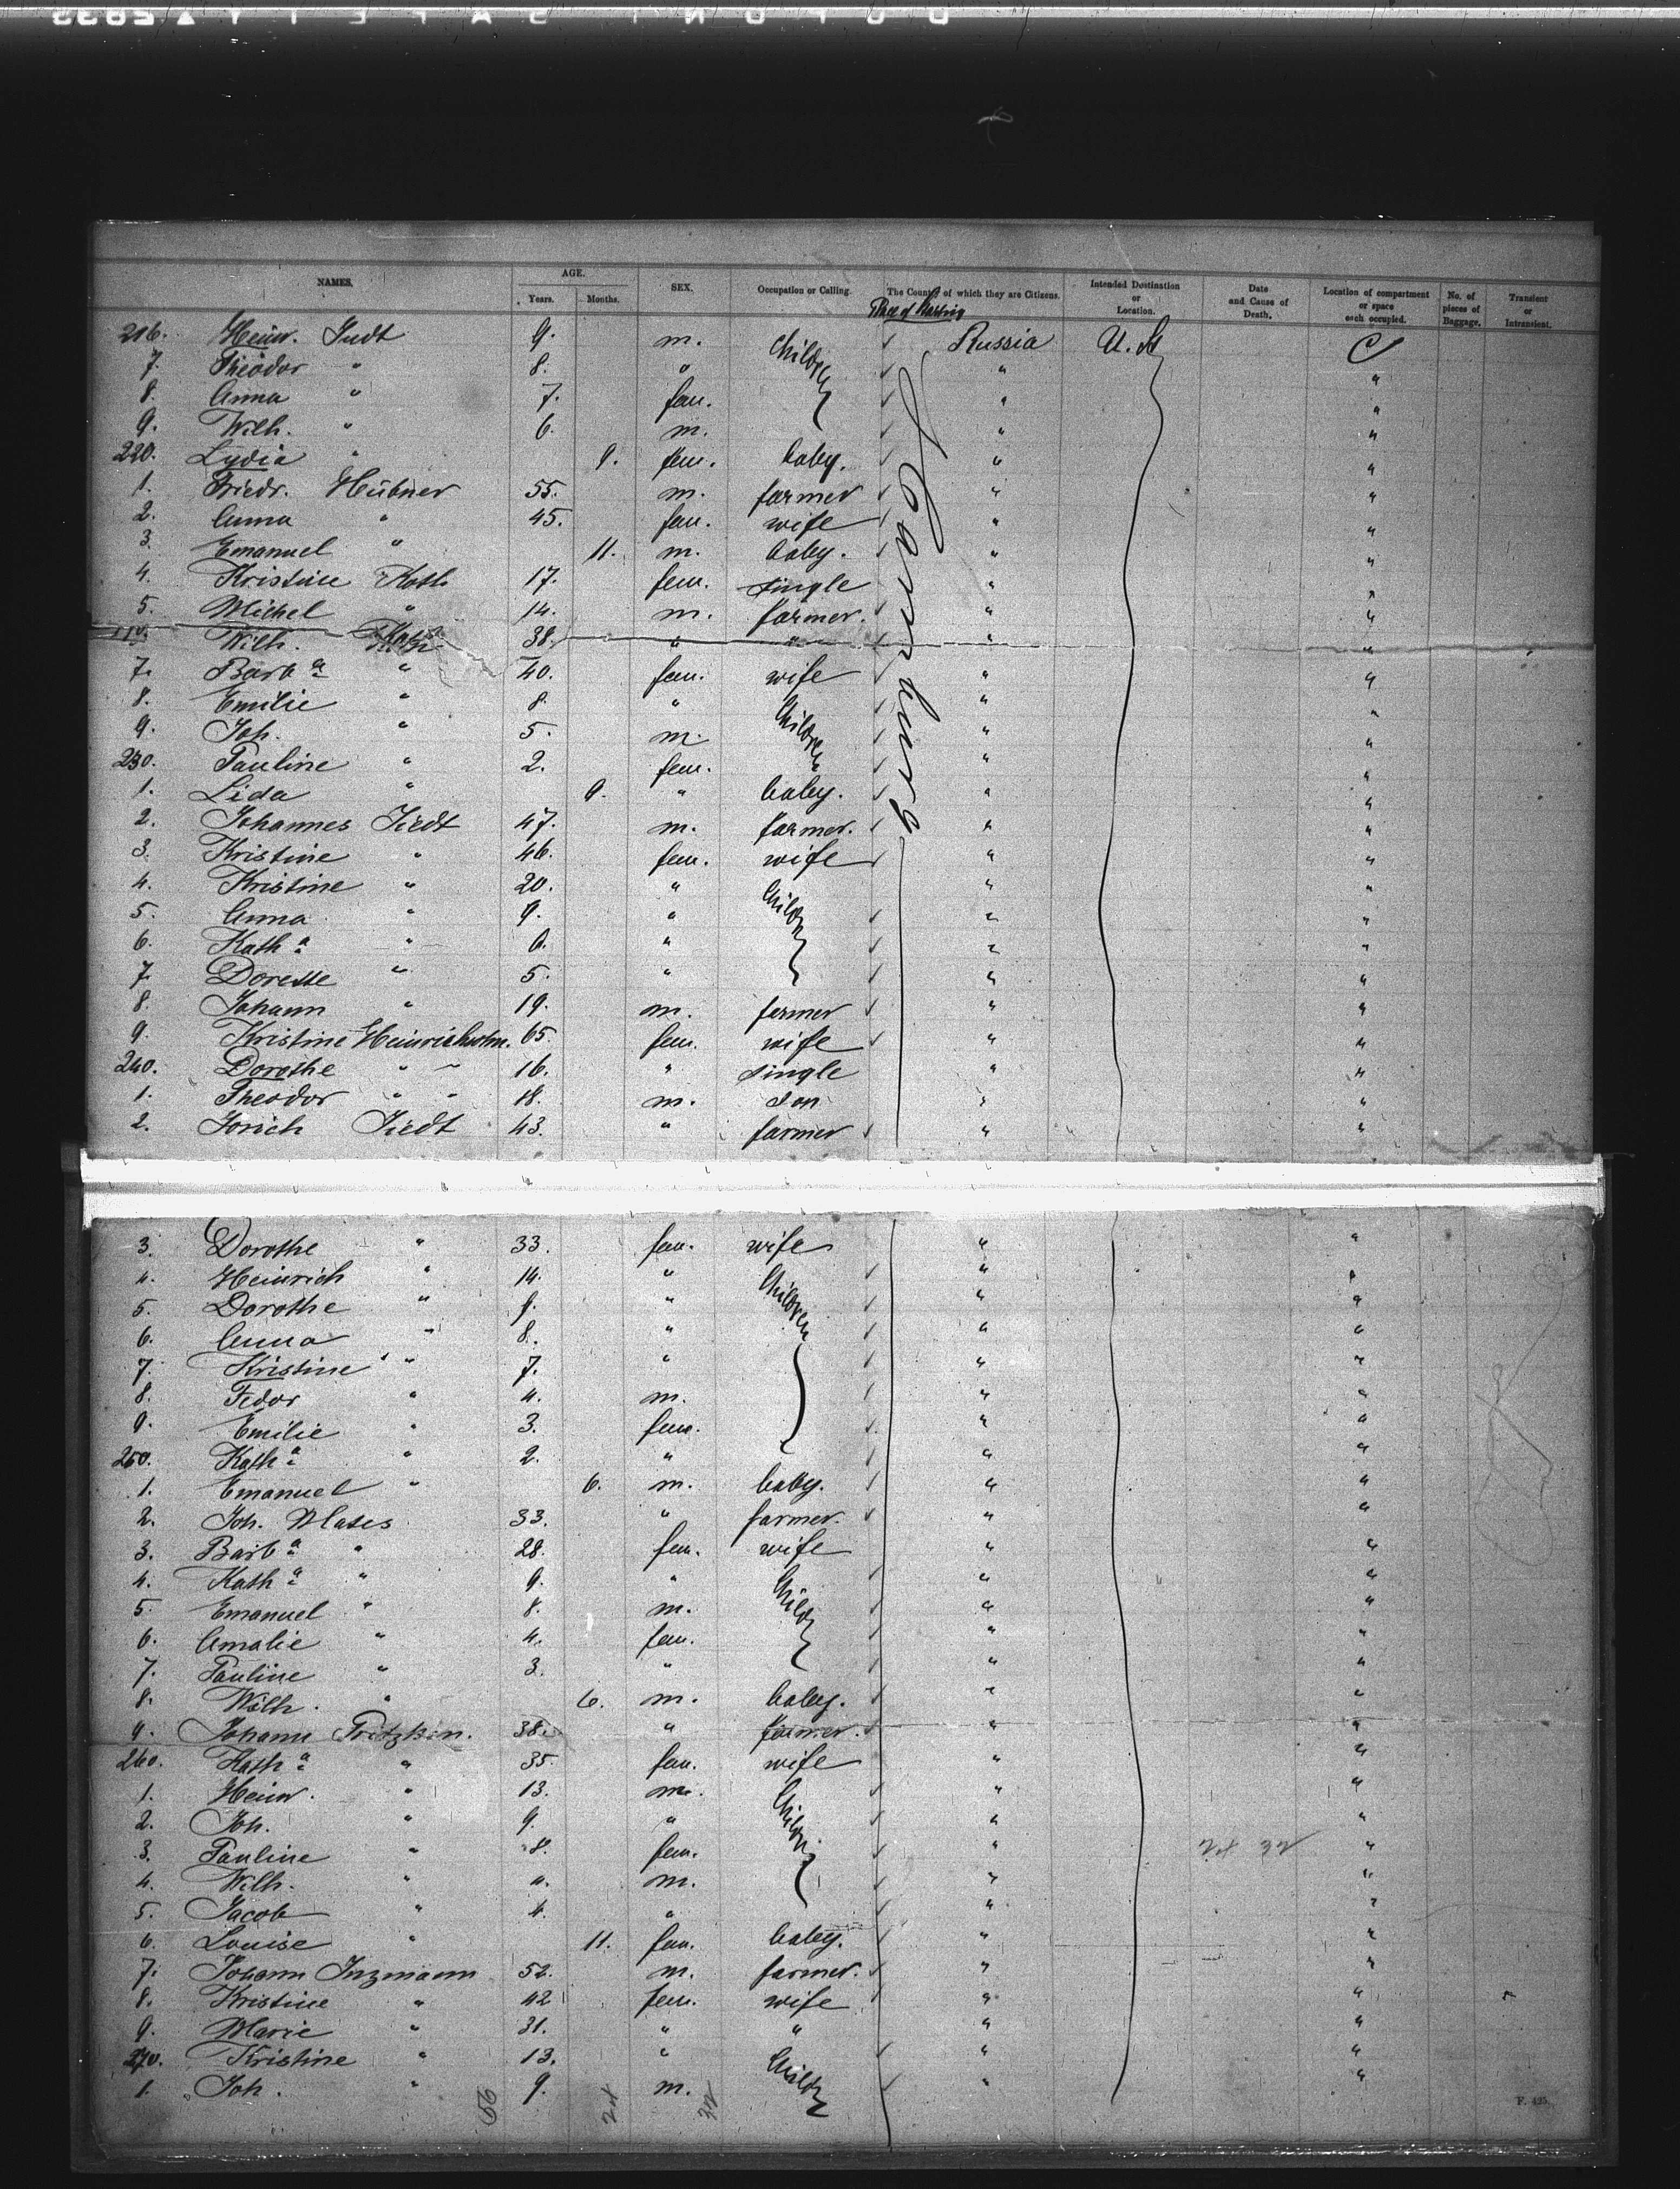 NAMES. AGE. SEX. Occupation or Calling. The Country of which they are Citizens. Intended Destination or Location. Date and Cause of Death. Location of compartment or space each occupied. No. of pieces of Baggage. Transient or Intransient.
Years. Months. Place of
216. Heinr. Judt 9. m. Children Russia U. St C
7. Theodor " 8. " " "
8. Anna " 7. fem. " "
9. Wilh. " 6. m. " "
220. Lydia " 9. fem. baby. " "
1. Friedr. Hübner 55. m. farmer " "
2. Anna " 45. fem. wife " "
3. Emanuel " 11. m. baby. " "
4. Kristine Koth 17. fem. single " "
5. Michel " 14. m. farmer. " "
Wilh. 38. " " " "
7. Barbª " 40. fem. wife " "
8. Emilie " 8. " Children " "
9. Joh. " 5. m. " "
230. Pauline " 2. fem. " "
1. Lida " 9. " baby. " "
2. Johannes Tiedt 47. m. farmer. " "
3. Kristine " 46. fem. wife " "
4. Kristine " 20. " Childr " "
5. Anna " 9. " " "
6. Kathª " " " "
7. Dorette " 5. " " "
8. Johann " 19. m. farmer " "
9. Kristine 65. fem. wife " "
240. Dorothe " 16. " single " "
1. Theodor " 18. m. son " "
2. Tiedt 43. " farmer " "
3. Dorothe " 33. fem. wife " "
4. Heinrich " 14. " Children " "
5. Dorothe " 9. " " "
6. Anna " 8. " " "
7. Kristine " 7. " " "
8. Fedor " 4. m. " "
9. Emilie " 3. fem. " "
250. Kathª " 2. " " "
1. Emanuel " 6. m. baby. " "
2. Joh. Mates 33. " farmer. " "
3. Barbª " 28. fem. wife " "
4. Kathª " 9. " Childr " "
5. Emanuel " 8. m. " "
6. Amalie " 4. fem. " "
7. Pauline " 3. " " "
8. Wilh. " 6. m. baby. " "
9. Johann 38. " farmer. " "
260. Kathª " 35. fem. wife " "
1. Heinr. " 13. m. Childr. " "
2. Joh. " 9. " " "
3. Pauline " 8. fem. " "
4. Wilh. " m. " "
5. Jacob " 4. " " "
6. Louise " 11. fem. baby. " "
7. Johann Inzmann 52. m. farmer. " "
8. Kristine " 42 fem. wife " "
9. Marie " 31. " " " "
270. Kristine " 13. " Childr " "
1. Joh. " 9. m. " "
Hamburg
F. 425.